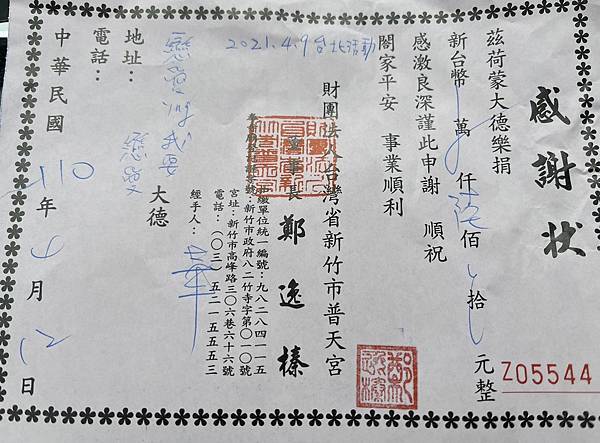 感謝狀
茲荷蒙大德樂捐
新台幣 萬 仟 陸 佰 拾 元整
感激良深謹此申謝 順祝
閤家平安 事業順利
2021.4.9台北活動
財團法人台灣省新竹市普天宮
董事長 鄭逸榛
統一編號：九八二八四一一五
新竹市政府八二竹寺字第〇一〇號
宮址：新竹市高峰路三〇六巷六十六號
電話：（〇三）五二一五五五三
經手人：
大德
地址：
電話：
中華民國 110 年 4 月 12 日
Z05544